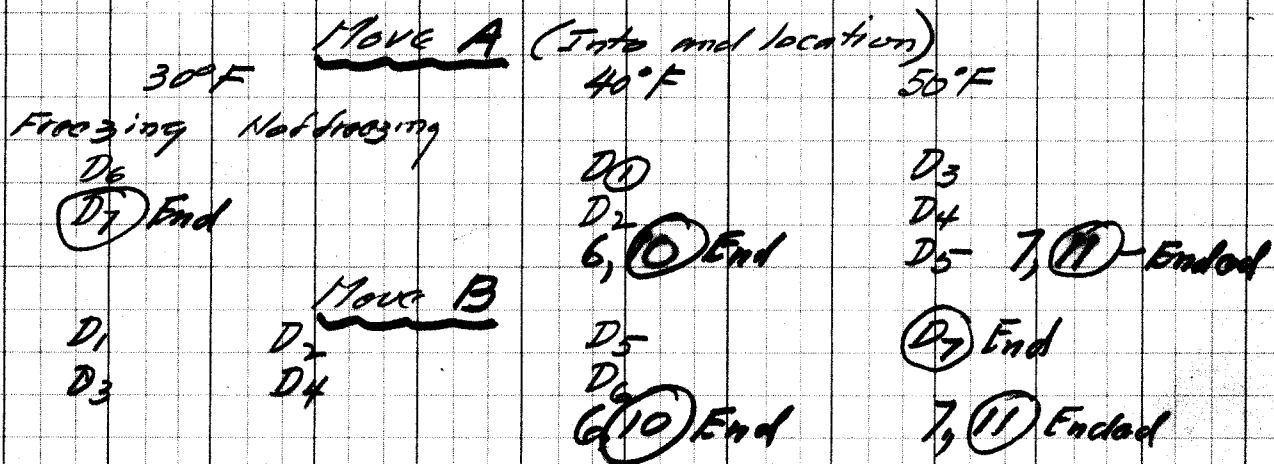 Move A (Into and location)
30°F 40°F 50°F
Freezing Not freezing
D6 D1 D3
D7 End D2 D4
6, 10 End D5 7, 11 - Ended
Move B
D1 D2 D5 D7 End
D3 D4 D6
6, 10 End 7, 11 Ended